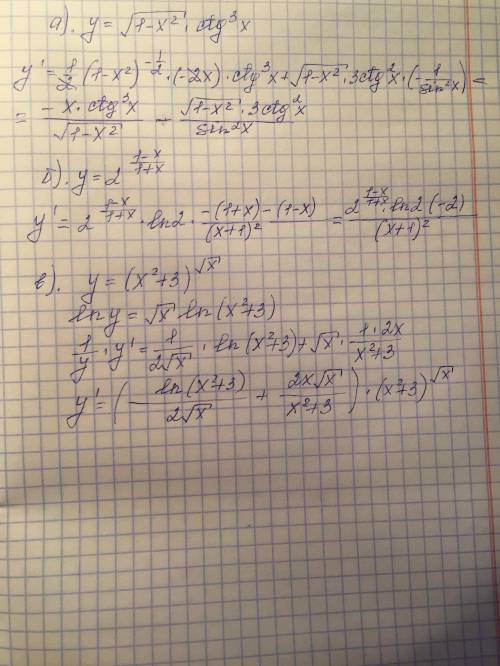 а). y = √(1-x²) · ctg³x
y' = 1/2 (1-x²)^(-1/2) · (-2x) · ctg³x + √(1-x²) · 3ctg²x · (-1/sin²x) =
= (-x · ctg³x)/√(1-x²) - (√(1-x²) · 3ctg²x)/sin²x
б). y = 2^((1-x)/(1+x))
y' = 2^((1-x)/(1+x)) · ln2 · (-(1+x)-(1-x))/(x+1)² = (2^((1-x)/(1+x)) · ln2 (-2))/(x+1)²
в). y = (x²+3)^√x
ln y = √x ln(x²+3)
1/y · y' = 1/(2√x) · ln(x²+3) + √x · (1·2x)/(x²+3)
y' = (ln(x²+3)/(2√x) + (2x√x)/(x²+3)) · (x²+3)^√x